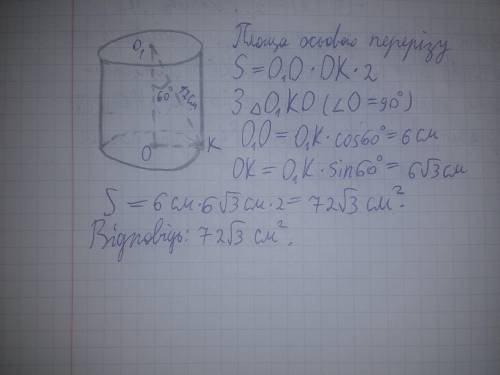 Площа осьового перерізу
S = O₁O · OK · 2
З △O₁KO (∠O = 90°)
O₁O = O₁K · cos60° = 6 см
OK = O₁K · sin60° = 6√3 см
S = 6 см · 6√3 см · 2 = 72√3 см².
Відповідь: 72√3 см².
O₁
60°
12 см
O
K